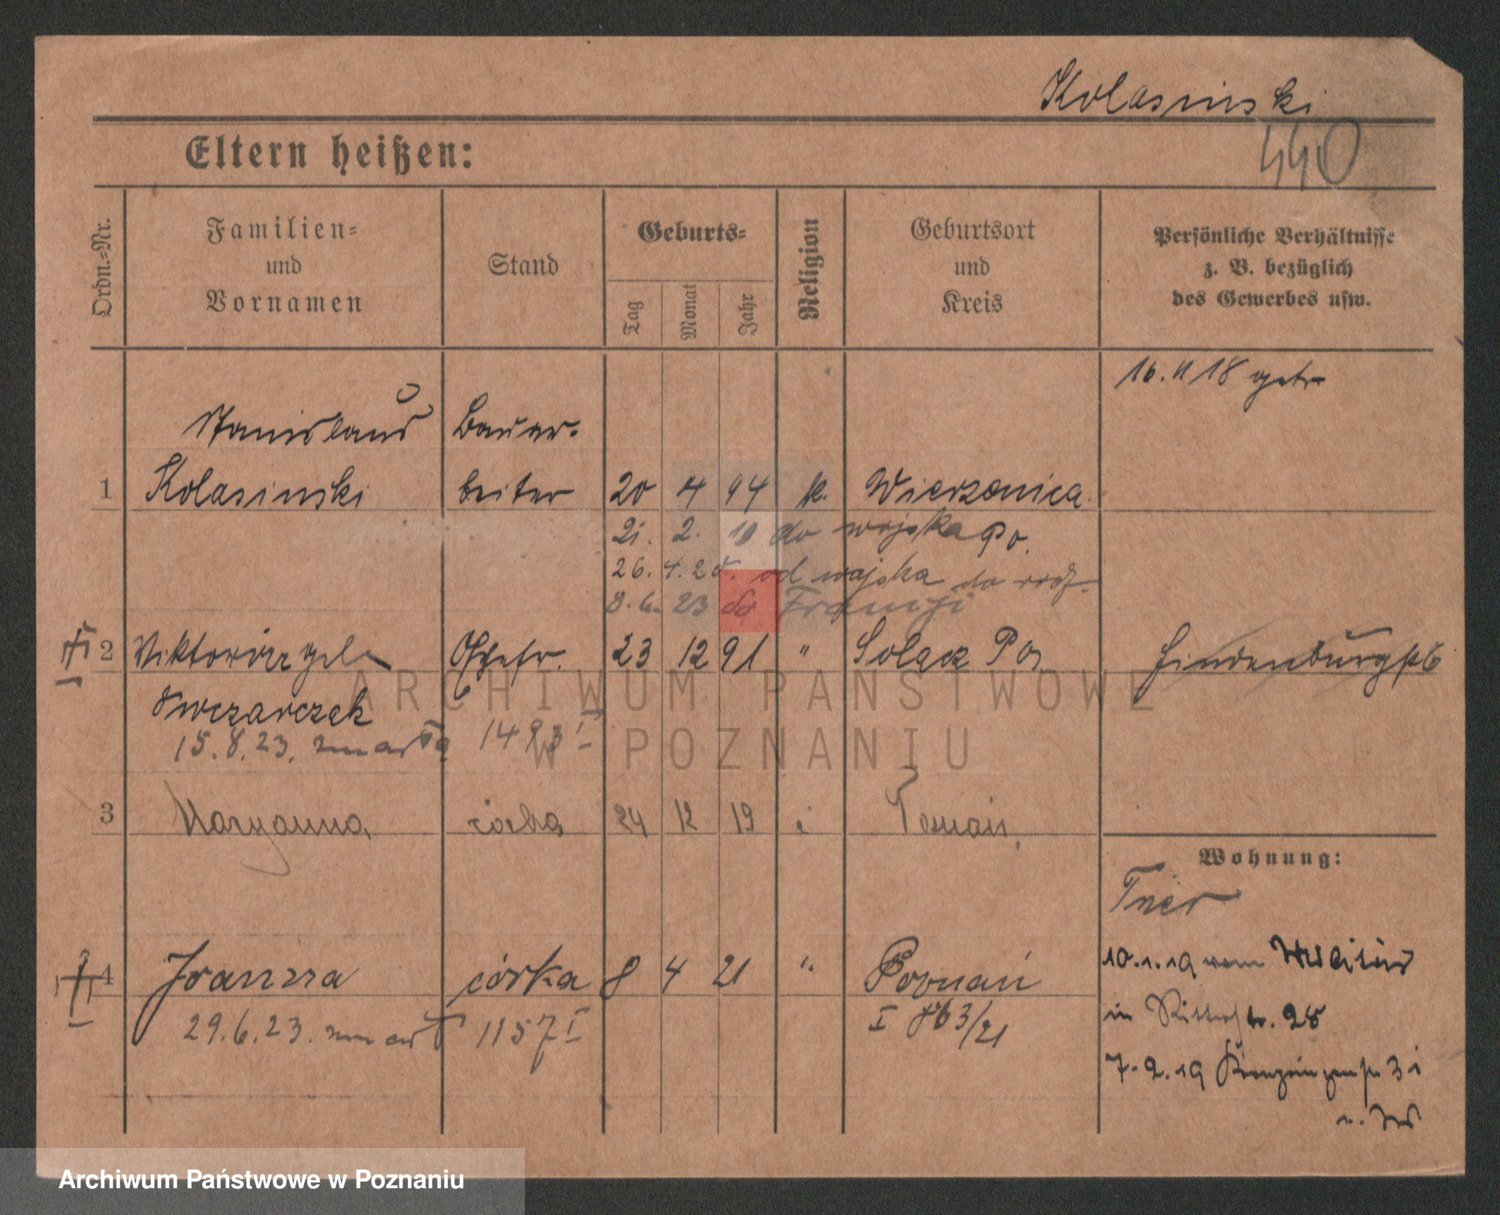 Kolasinski
440
Eltern heißen:
Ordn.-Nr.
Familien-
und
Vornamen
Stand
Geburts-
Tag
Monat
Jahr
Religion
Geburtsort
und
Kreis
Persönliche Verhältnisse
z. B. bezüglich
des Gewerbes usw.
16.11 18 getr
Stanislaus Bauar-
1 Kolasinski beiter 20 4 94 k. Wierzonica
21. 2. 19 do wojska Po.
26. 4. 20. od wojska do rodz.
8. 6. 23 do Francji
2 Viktoria geb Ehefr. 23 12 91 " Solacz Po.
Owczarczak
15.8.23. zmarła 1493 I
3 Maryanna córka 24 12 19 Poznań
Wohnung:
4 Joanna córka 8 4 21 " Poznań
29.6.23. zmar 1157 I
I 863/21
10.1.19 vom Militär
in Ritterstr. 28
7.2.19
ARCHIWUM PAŃSTWOWE
W POZNANIU
Archiwum Państwowe w Poznaniu